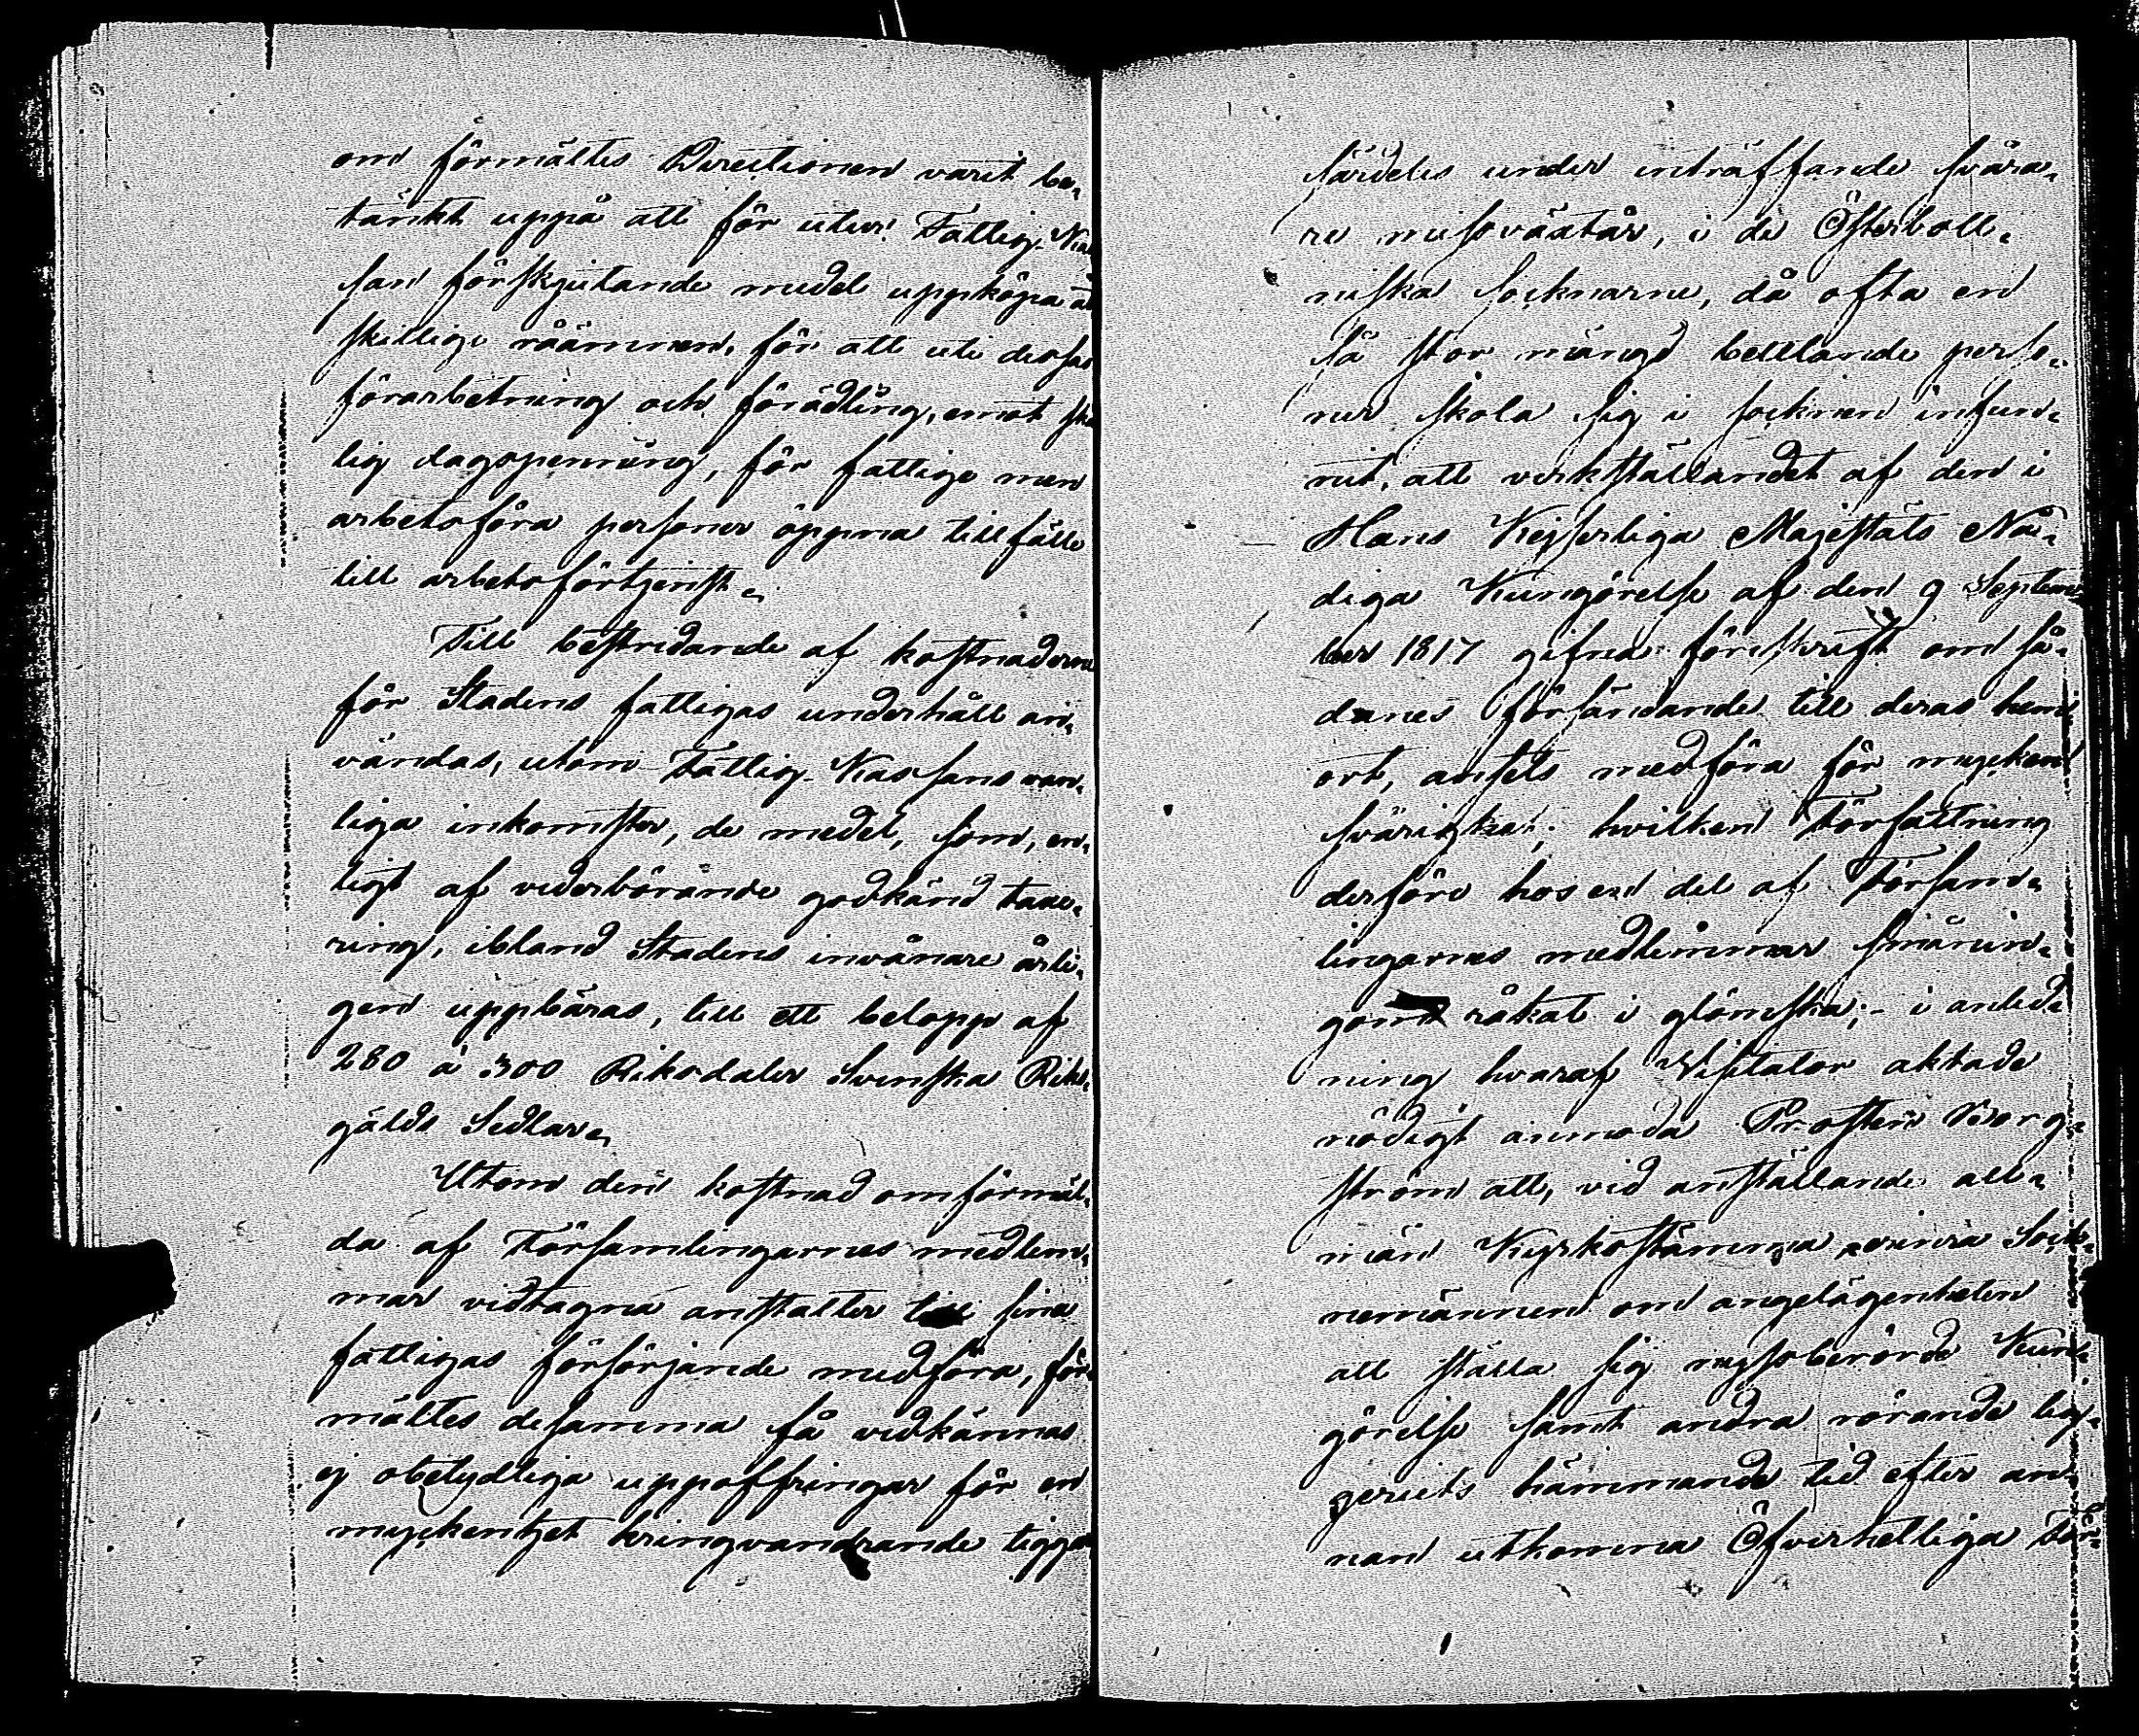 om förmältes Directionen varit be-
tänkt uppå att för utur Fattig-Kas
san förskjutande medel uppköpa åt
skillige råämnen, för att uti dessas
förarbetning och förädling, emot skä
lig dagspenning, för fattige men
arbetsföra personer öppna tillfälle
till arbetsförtjenst.
Till bestridande af kostnaderne
för Stadens fattigas underhåll an-
vändas, utom Fattig-Kassans van-
liga inkomster, de medel, som, en-
ligt af vederbörande godkänd taxe-
ring, ibland Stadens invånare årli-
gen uppbäras, till ett belopp af
280 à 300 Riksdaler Svenska Riks-
gälds Sedlar.
Utom den kostnad omförmäl-
da af Församlingarnes medlem-
mar vidtagna anstalter till sina
fattigas försörjande medföra, för-
mältes desamma få vidkännas
ej obetydliga uppoffringar för en
myckenhet kringvandrande tigga
särdeles under inträffande svåra-
re missväxtår, i de Österbott-
niska Socknarne, då ofta en
så stor mängd bettlande perso-
ner skola sig i socknen infun-
nit, att verkställandet af den i
Hans Kejserliga Majestäts Nå-
diga Kungörelse af den 9 Septem-
ber 1817 gifna föreskrift om så-
danes försändande till deras hem-
ort, ansets medföra för mycken
svårighet; hvilken Författning
derföre hos en del af Försam-
lingarnes medlemmar smånin-
gom råkat i glömska; - i anled-
ning hvaraf Visitator aktade
nödigt anmoda Prosten Borg-
ström att, vid anställande all-
män Kyrkostämma, erinra Sock-
nemännen om angelägenheten
att ställa sig nyssberörde Kun-
görelse samt andra rörande tig-
geriets hämmande tid efter an-
nan utkomma Öfverhetliga För-